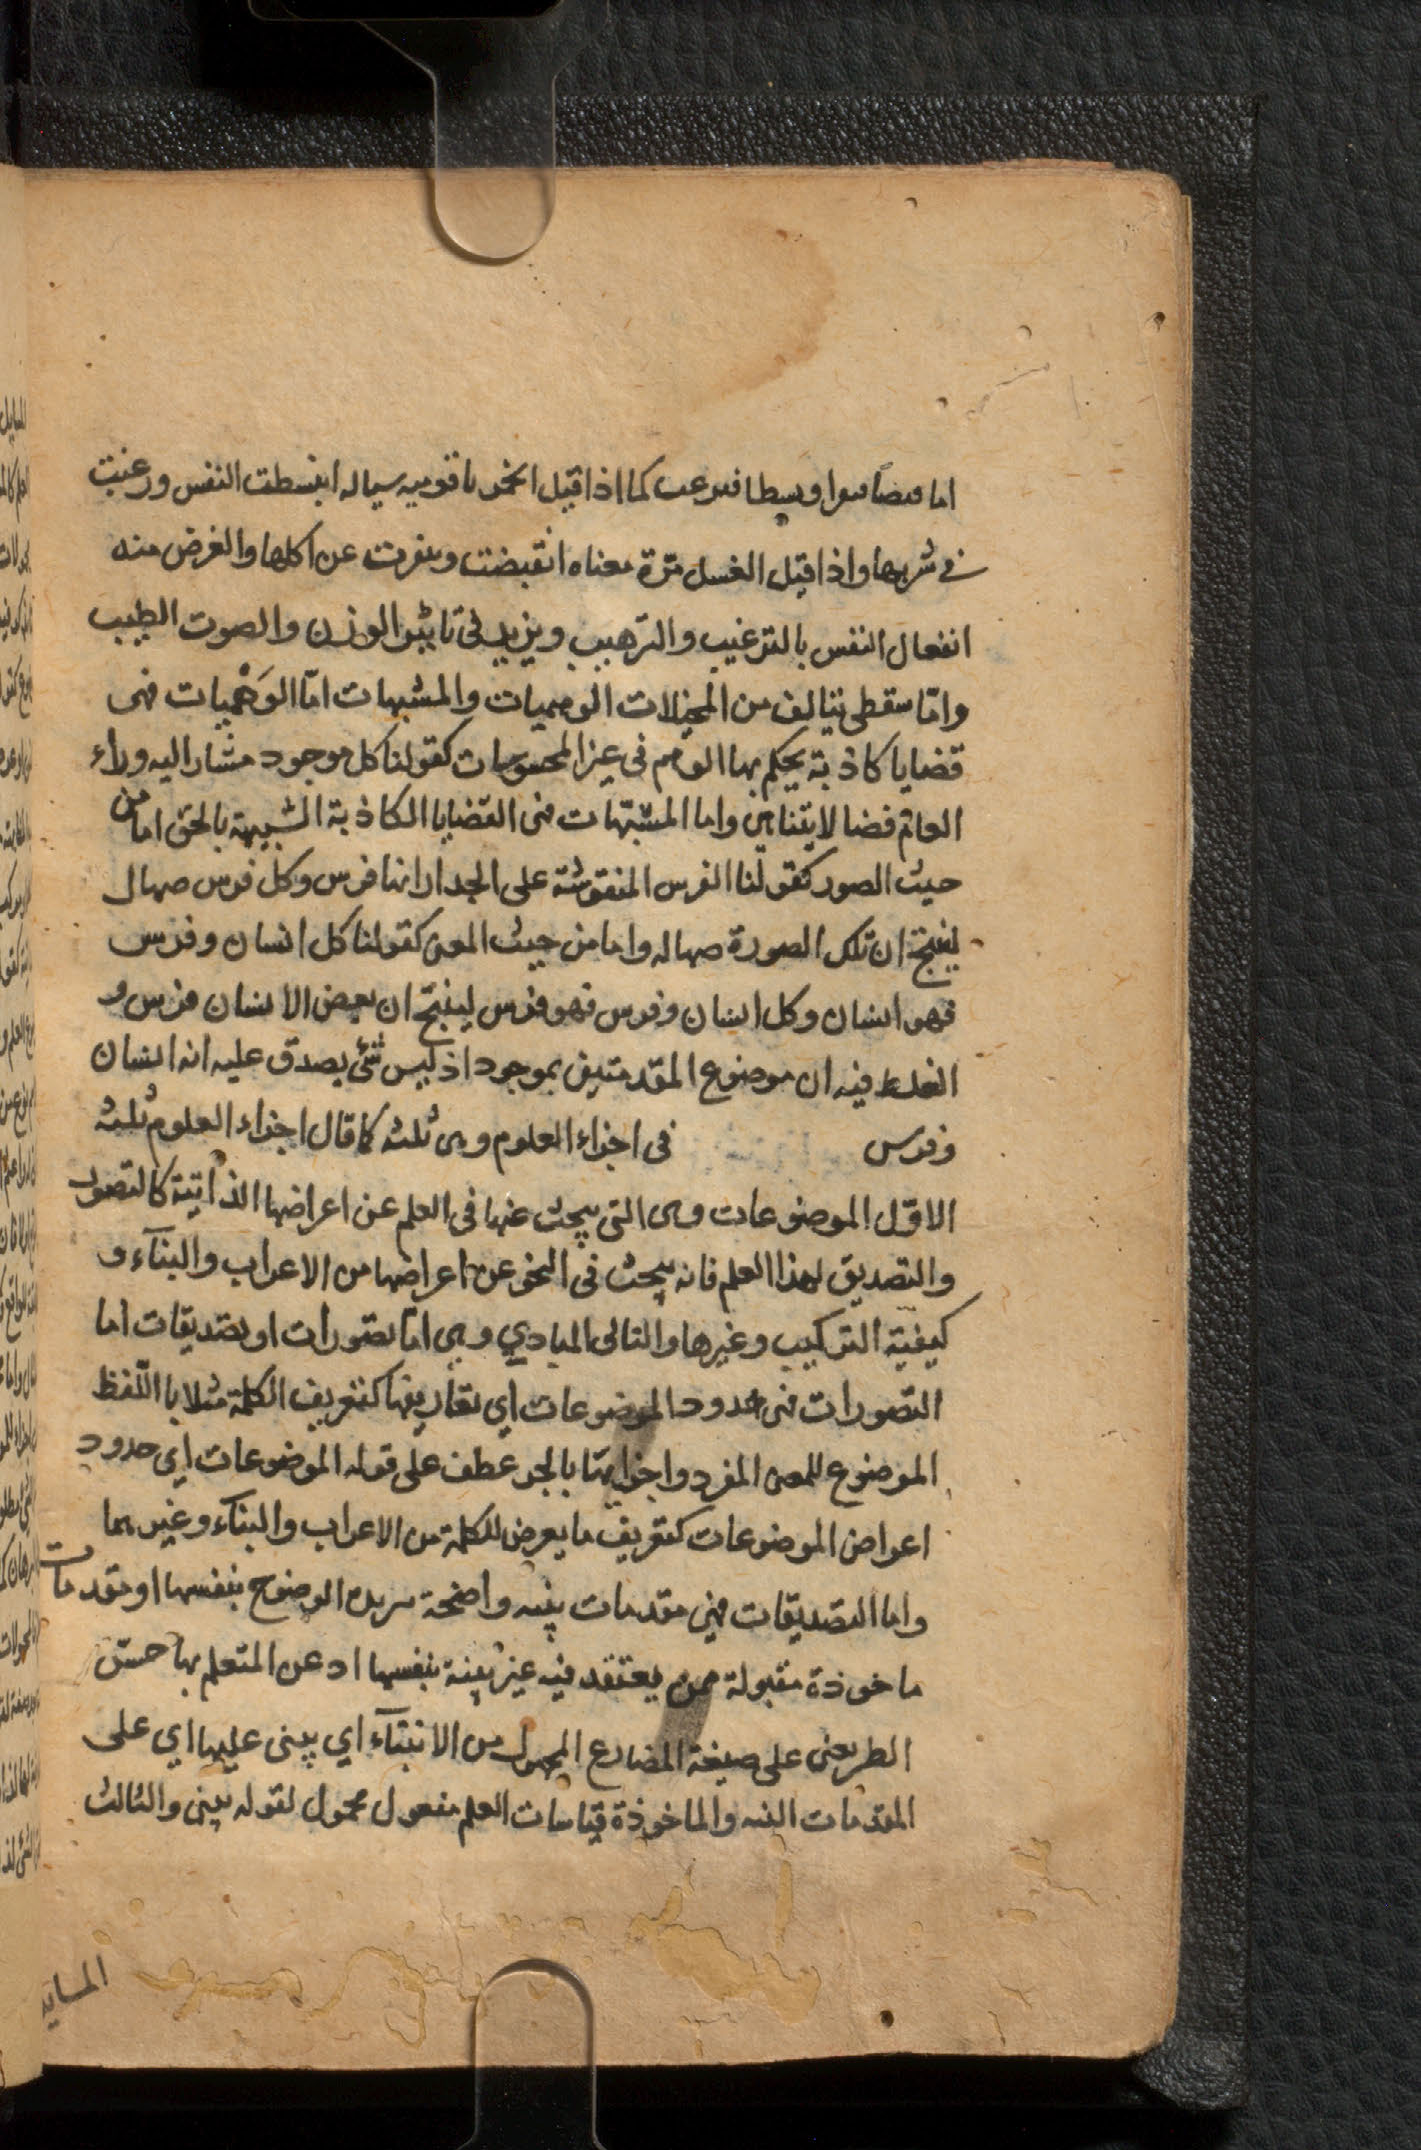 اما قبضا او بسطا فترغب كما اذا قيل الخمر ياقوتيه سياله انبسطت النفس ورغبت
فى شربها واذا قيل الغسل مرة معناه انقبضت ونفرت عن اكلها والغرض منه
انفعال النفس بالترغيب والترهيب ويزيد فى تاثير الوزن والصوت الطيب
وامّا سقطى يتالف من المخيلات الوهميات والمشبهات امّا الوَهْميات فهى
قضايا كاذبة يحكم بها الوهم فى غير المحسوسات كقولنا كل موجود مشار اليه وراء
العالم فضا لا يتناهى واما المشبّهات فهى القضايا الكاذبة الشبيهة بالحق اما من
حيث الصور كقولنا الفرس المنقوشة على الجدار انها فرس وكل فرس صهال
لينتج ان تلك الصورة صهاله واما من حيث المعنى كقولنا كل انسان وفرس
فهو انسان وكل انسان وفرس فهو فرس لينتج ان بعض الانسان فرس و
الغلط فيه ان موضوع المقدمتين بموجود اذ ليس شئ يصدق عليه انه انسان
وفرس فى اجزاء العلوم وهى ثلثه كما قال اجزاء العلوم ثلثه
الاوّل الموضوعات وهى التى يبحث عنها فى العلم عن اعراضها الذاتية كالتصور
والتصديق لهذا العلم فانه يبحث فى النحو عن اعراضها من الاعراب والبنآء و
كيفية التركيب وغيرها والثانى المبادي وهى امّا تصورات او تصديقات اما
التصورات فهى حدود الموضوعات اي تعاريفها كتعريف الكلمة مثلا باللّفظ
الموضوع للمعنى المفرد واجزايها بالجر عطف على قوله الموضوعات اي حدود
اعراض الموضوعات كتعريف ما يعرض للكلمة من الاعراب والبنآء وغيرهما
واما التصديقات فهى مقدمات بينه واضحة الوضوح بنفسها او مقدمات
ماخوذة مقبولة ممن يعتقد فيه غير بينة بنفسها اذعن المتعلم بها حسن
الظن يعنى على صيغة المضارع المجهول من الابتنآء اي يبنى عليها اي على
المقدمات البينه والماخوذة قياسات العلم مفعول محمول لقوله يبنى والثالث
المسايل